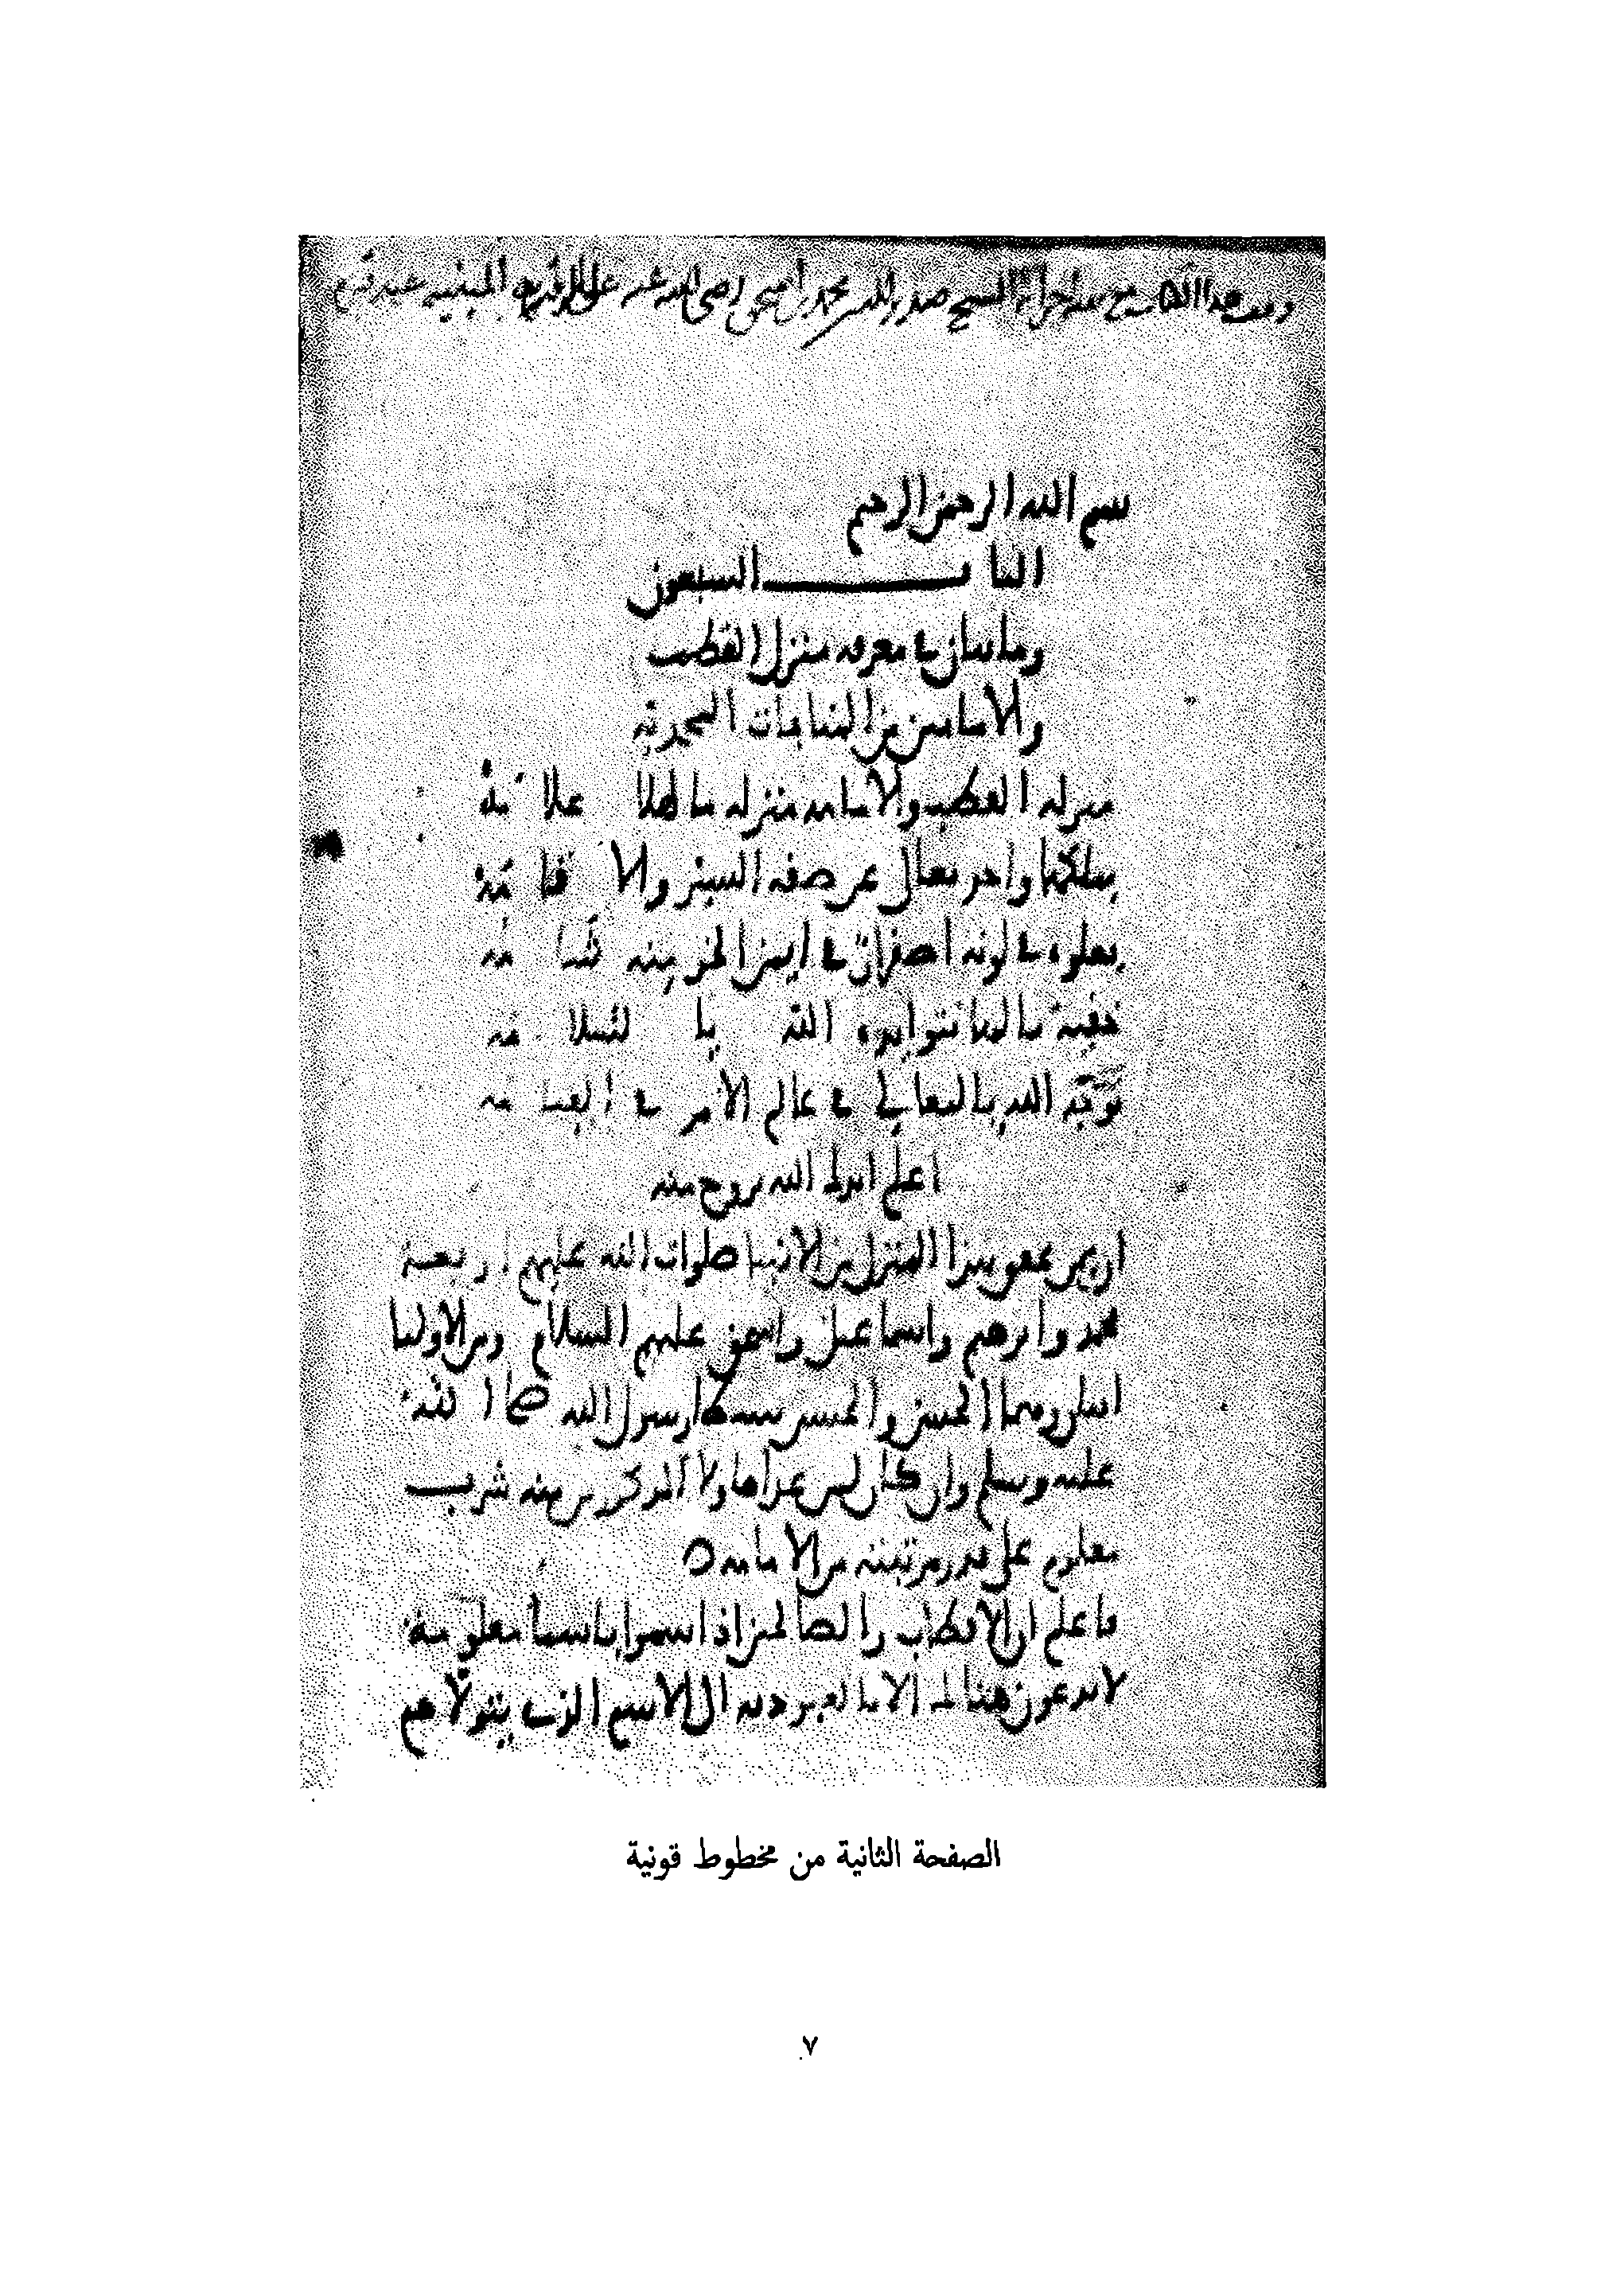 وقف هذا الكتاب مع سائر أجزائه الشيخ صدر الدين محمد بن إسحق رضي الله عنه على المبنية عند قبره
بسم الله الرحمن الرحيم
البا ب السبعون
وما يتان في معرفة منزل القطب
والامامين من المناجات المحمدية
منزلة القطب والامامه منزلة ما لها علا مة
يملكها واحد تعالى عن صفة السير والا قا مة
يعلوه في لونه اصفرار في ايمن الخد منه شا مة
خفية ما لها نتو ايده الله با لسلا مة
توجه الله بالمعالي في عالم الامر في القيا مة
اعلم ايدك الله بروح منه
ان ممن تحقق بهذا المنزل من الانبيا صلوات الله عليهم اربعة
محمد وابرهيم واسماعيل واسحق عليهم السلام ومن الاوليا
اثنان وهما الحسن والحسين سبطا رسول الله صلى الله
عليه وسلم وان كان لمن عدا هاولا المذكورين منه شرب
معلوم على قدر مرتبته من الامامه
فاعلم ان الاقطاب والصالحين اذا سموا باسما معلومة
لا يدعون هنالك الا بالعبودية الى الاسم الذي يتولاهم
الصفحة الثانية من مخطوط قونية
٧